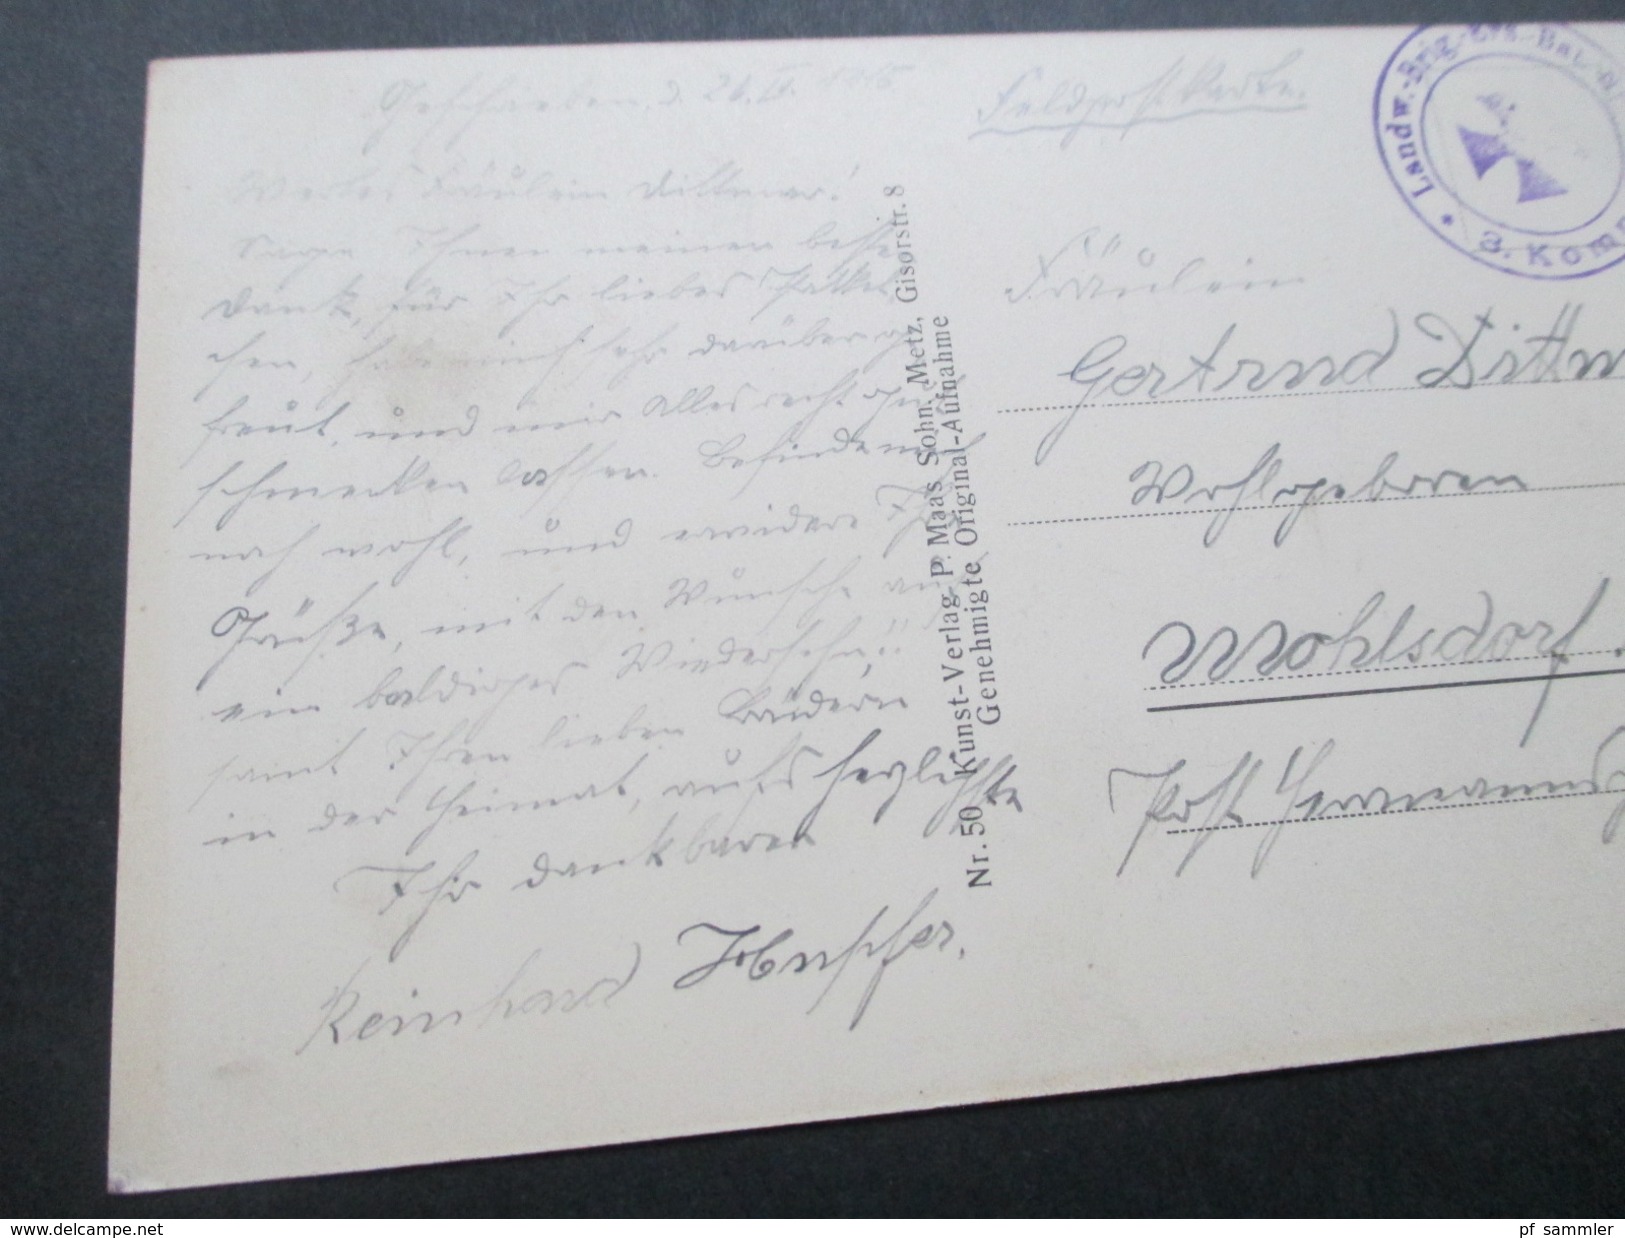 Geschrieben, d. 26. II. 1915
Wertes Fräulein Dittmar!
Sage Ihnen meinen besten
Dank, für Ihr liebes Packet-
chen, habe mich sehr darüber ge-
freut, und mir alles recht gut
schmecken lassen. Befinde mich
noch wohl, und erwidere Ihre
Grüße, mit den Wunsche auf
ein baldiges Wiedersehn,
samt Ihren lieben Brüdern
in der Heimat, aufs herzlichste
Ihr dankbarer
Reinhard
Nr. 50 Kunst-Verlag P. Maas Sohn, Metz, Gisorstr. 8
Genehmigte Original-Aufnahme
Feldpostkarte.
Landw.-Brig.-Ers.-Bat.
3. Komp
Fräulein
Gertrud Dittm
Wohlgeboren
Mohlsdorf
Post Hermanns
www.delcampe.net
pf_sammler